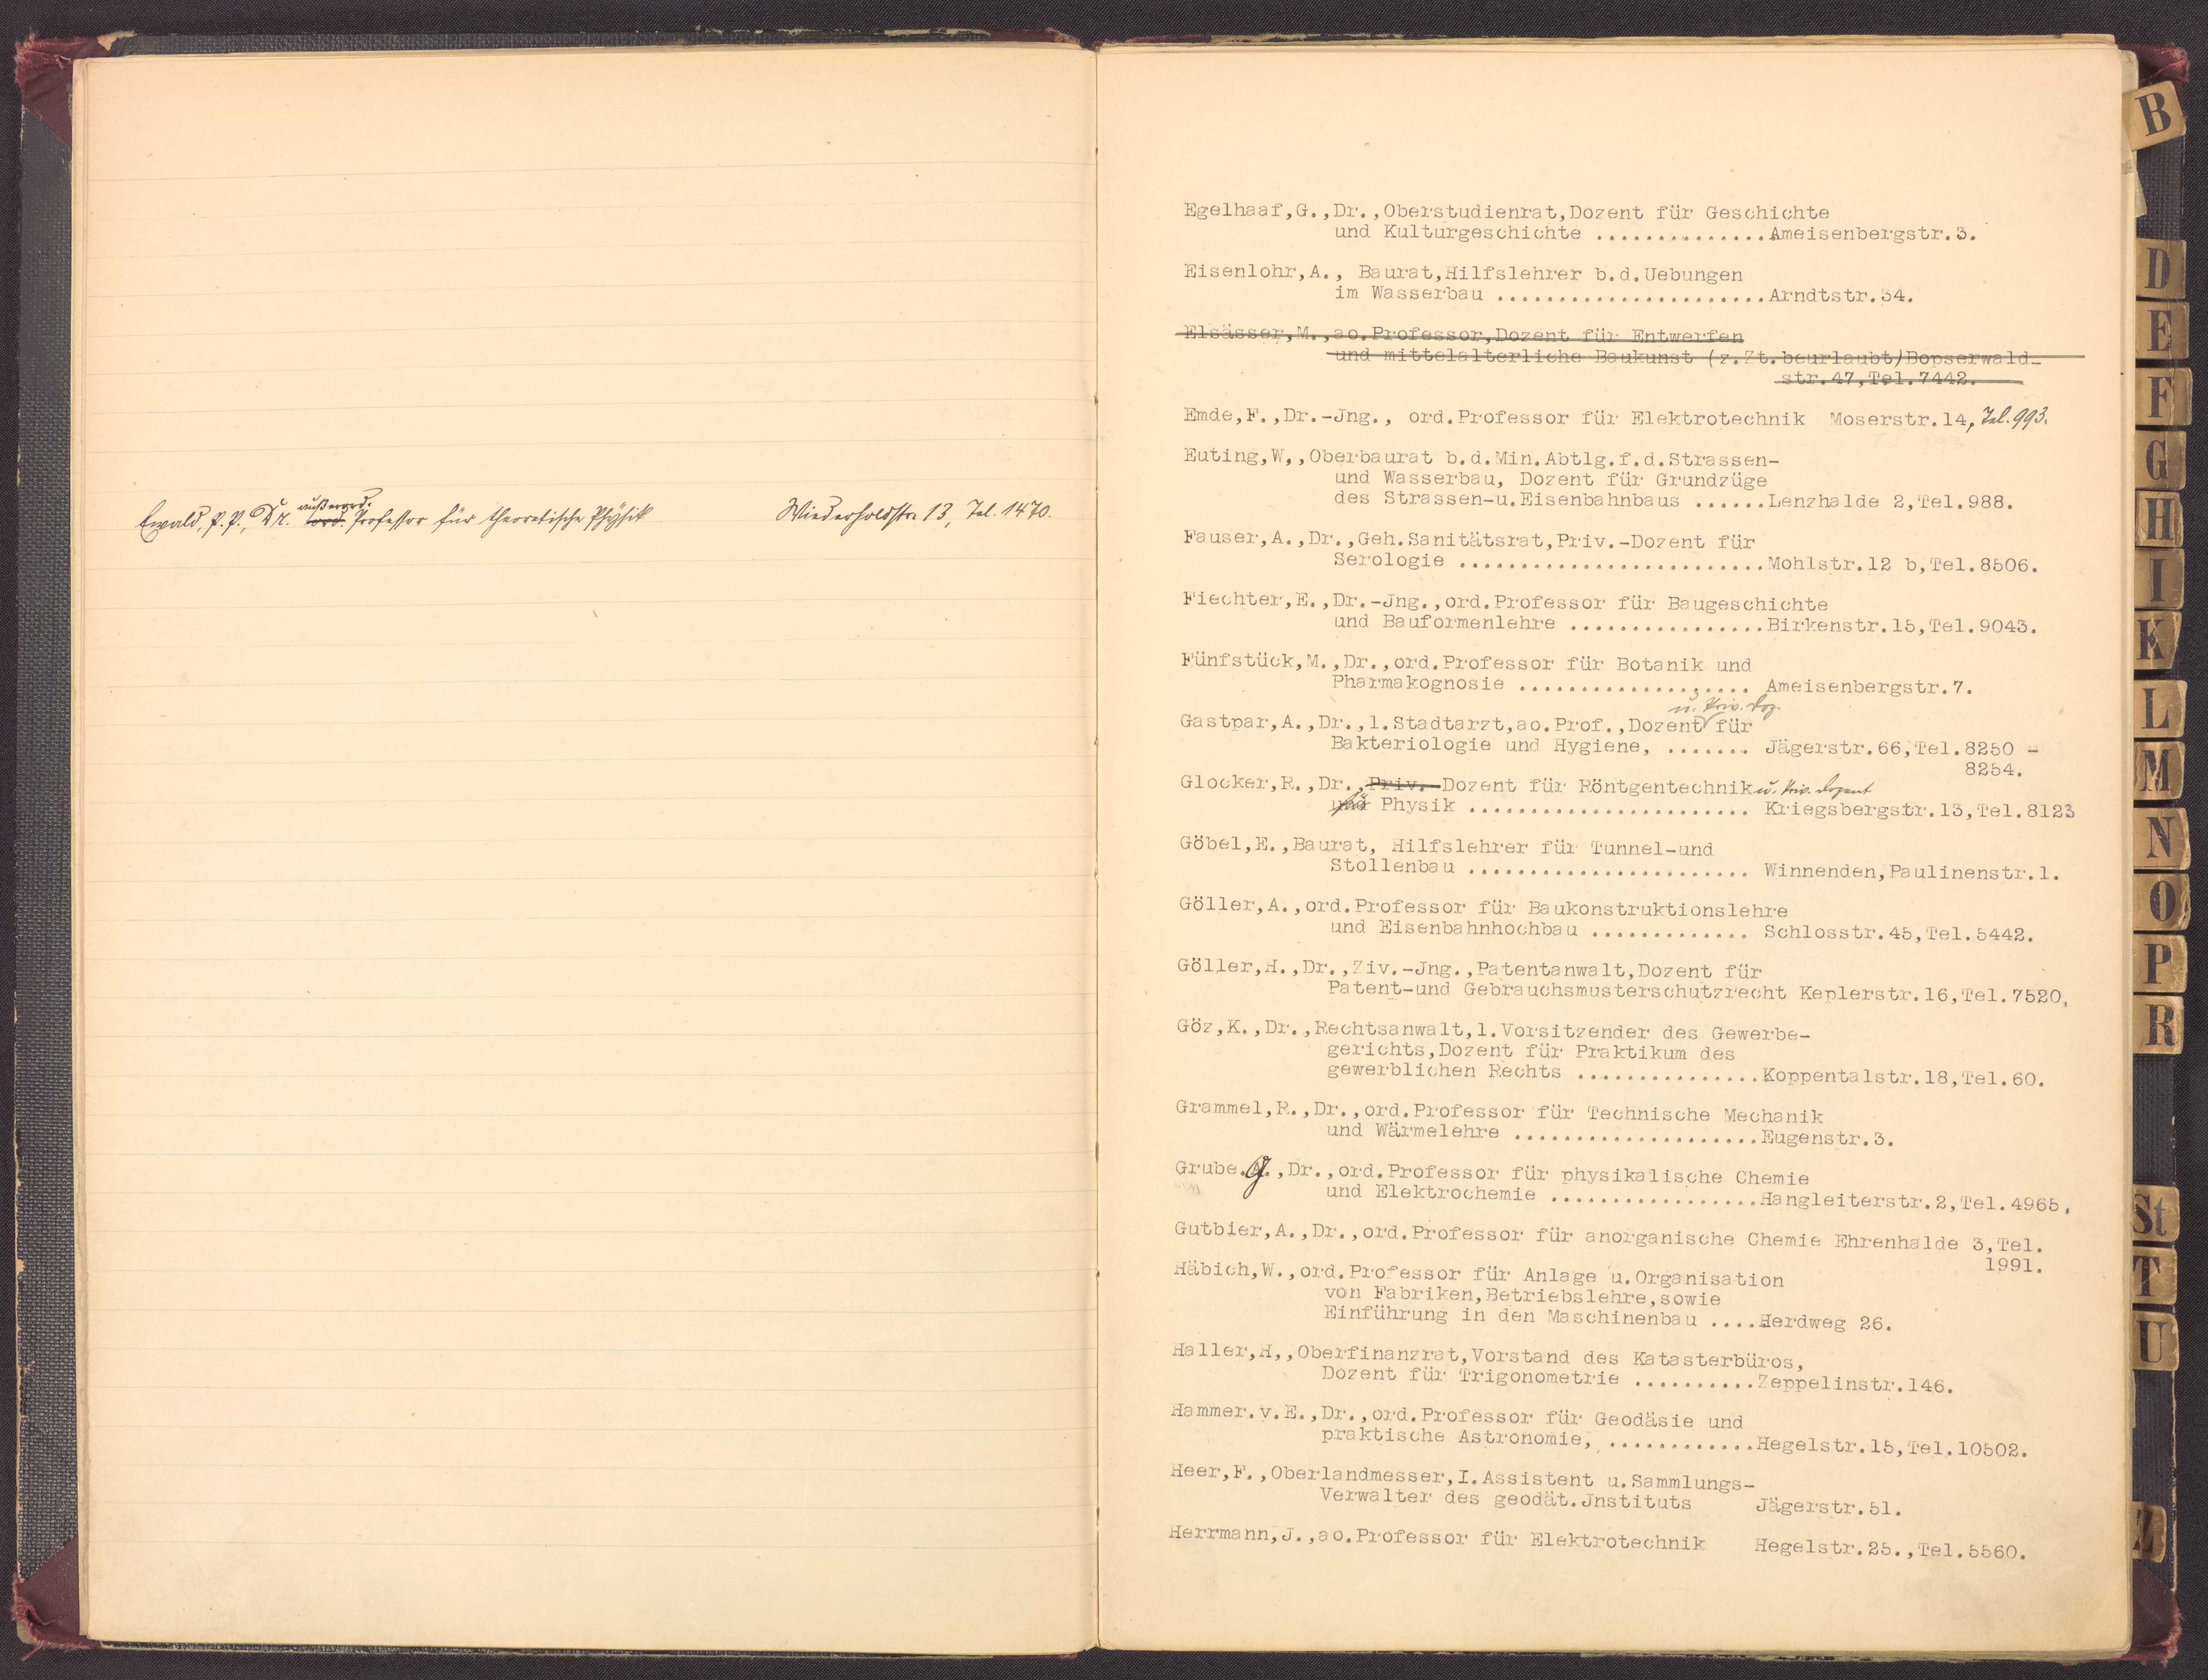 Ewald, P. P., Dr. ord. außerord. Professor für theoretische Physik Wiederholdstr. 13, Tel. 1470.
Egelhaaf,G.,Dr.,Oberstudienrat,Dozent für Geschichte
und Kulturgeschichte ..............Ameisenbergstr.3.
Eisenlohr,A., Baurat,Hilfslehrer b.d.Uebungen
im Wasserbau ......................Arndtstr.34.
Elsässer,M.,ao.Professor,Dozent für Entwerfen
und mittelalterliche Baukunst (z.Zt.beurlaubt)Bopserwald-
str.47,Tel.7442.
Emde,F.,Dr.-Jng., ord.Professor für Elektrotechnik Moserstr.14, Tel. 993.
Euting,W,,Oberbaurat b.d.Min.Abtlg.f.d.Strassen-
und Wasserbau, Dozent für Grundzüge
des Strassen-u.Eisenbahnbaus ......Lenzhalde 2,Tel.988.
Fauser,A.,Dr.,Geh.Sanitätsrat,Priv.-Dozent für
Serologie .........................Mohlstr.12 b,Tel.8506.
Fiechter,E.,Dr.-Jng.,ord.Professor für Baugeschichte
und Bauformenlehre ................Birkenstr.15,Tel.9043.
Fünfstück,M.,Dr.,ord.Professor für Botanik und
Pharmakognosie ................... Ameisenbergstr.7.
u. Priv. Doz.
Gastpar,A.,Dr.,1.Stadtarzt,ao.Prof.,Dozent für
Bakteriologie und Hygiene, ....... Jägerstr.66,Tel.8250 -
8254.
Glocker,R.,Dr.,Priv.-Dozent für Röntgentechnik u. Priv. Dozent
für Physik ....................... Kriegsbergstr.13,Tel.8123
Göbel,E.,Baurat, Hilfslehrer für Tunnel-und
Stollenbau ....................... Winnenden,Paulinenstr.1.
Göller,A.,ord.Professor für Baukonstruktionslehre
und Eisenbahnhochbau ............. Schlosstr.45,Tel.5442.
Göller,H.,Dr.,Ziv.-Jng.,Patentanwalt,Dozent für
Patent-und Gebrauchsmusterschutzrecht Keplerstr.16,Tel.7520,
Göz,K.,Dr.,Rechtsanwalt,1.Vorsitzender des Gewerbe-
gerichts,Dozent für Praktikum des
gewerblichen Rechts ...............Koppentalstr.18,Tel.60.
Grammel,R.,Dr.,ord.Professor für Technische Mechanik
und Wärmelehre ....................Eugenstr.3.
Grube.G.,Dr.,ord.Professor für physikalische Chemie
und Elektrochemie .................Hangleiterstr.2,Tel.4965,
Gutbier,A.,Dr.,ord.Professor für anorganische Chemie Ehrenhalde 3,Tel.
1991.
Häbich,W.,ord.Professor für Anlage u.Organisation
von Fabriken,Betriebslehre,sowie
Einführung in den Maschinenbau ....Herdweg 26.
Haller,H,,Oberfinanzrat,Vorstand des Katasterbüros,
Dozent für Trigonometrie ..........Zeppelinstr.146.
Hammer.v.E.,Dr.,ord.Professor für Geodäsie und
praktische Astronomie, ............Hegelstr.15,Tel.10502.
Heer,F.,Oberlandmesser,I.Assistent u.Sammlungs-
Verwalter des geodät.Jnstituts Jägerstr.51.
Herrmann,J.,ao.Professor für Elektrotechnik Hegelstr.25.,Tel.5560.
B
D
E
F
G
H
I
K
L
M
N
O
P
R
St
T
U
Z